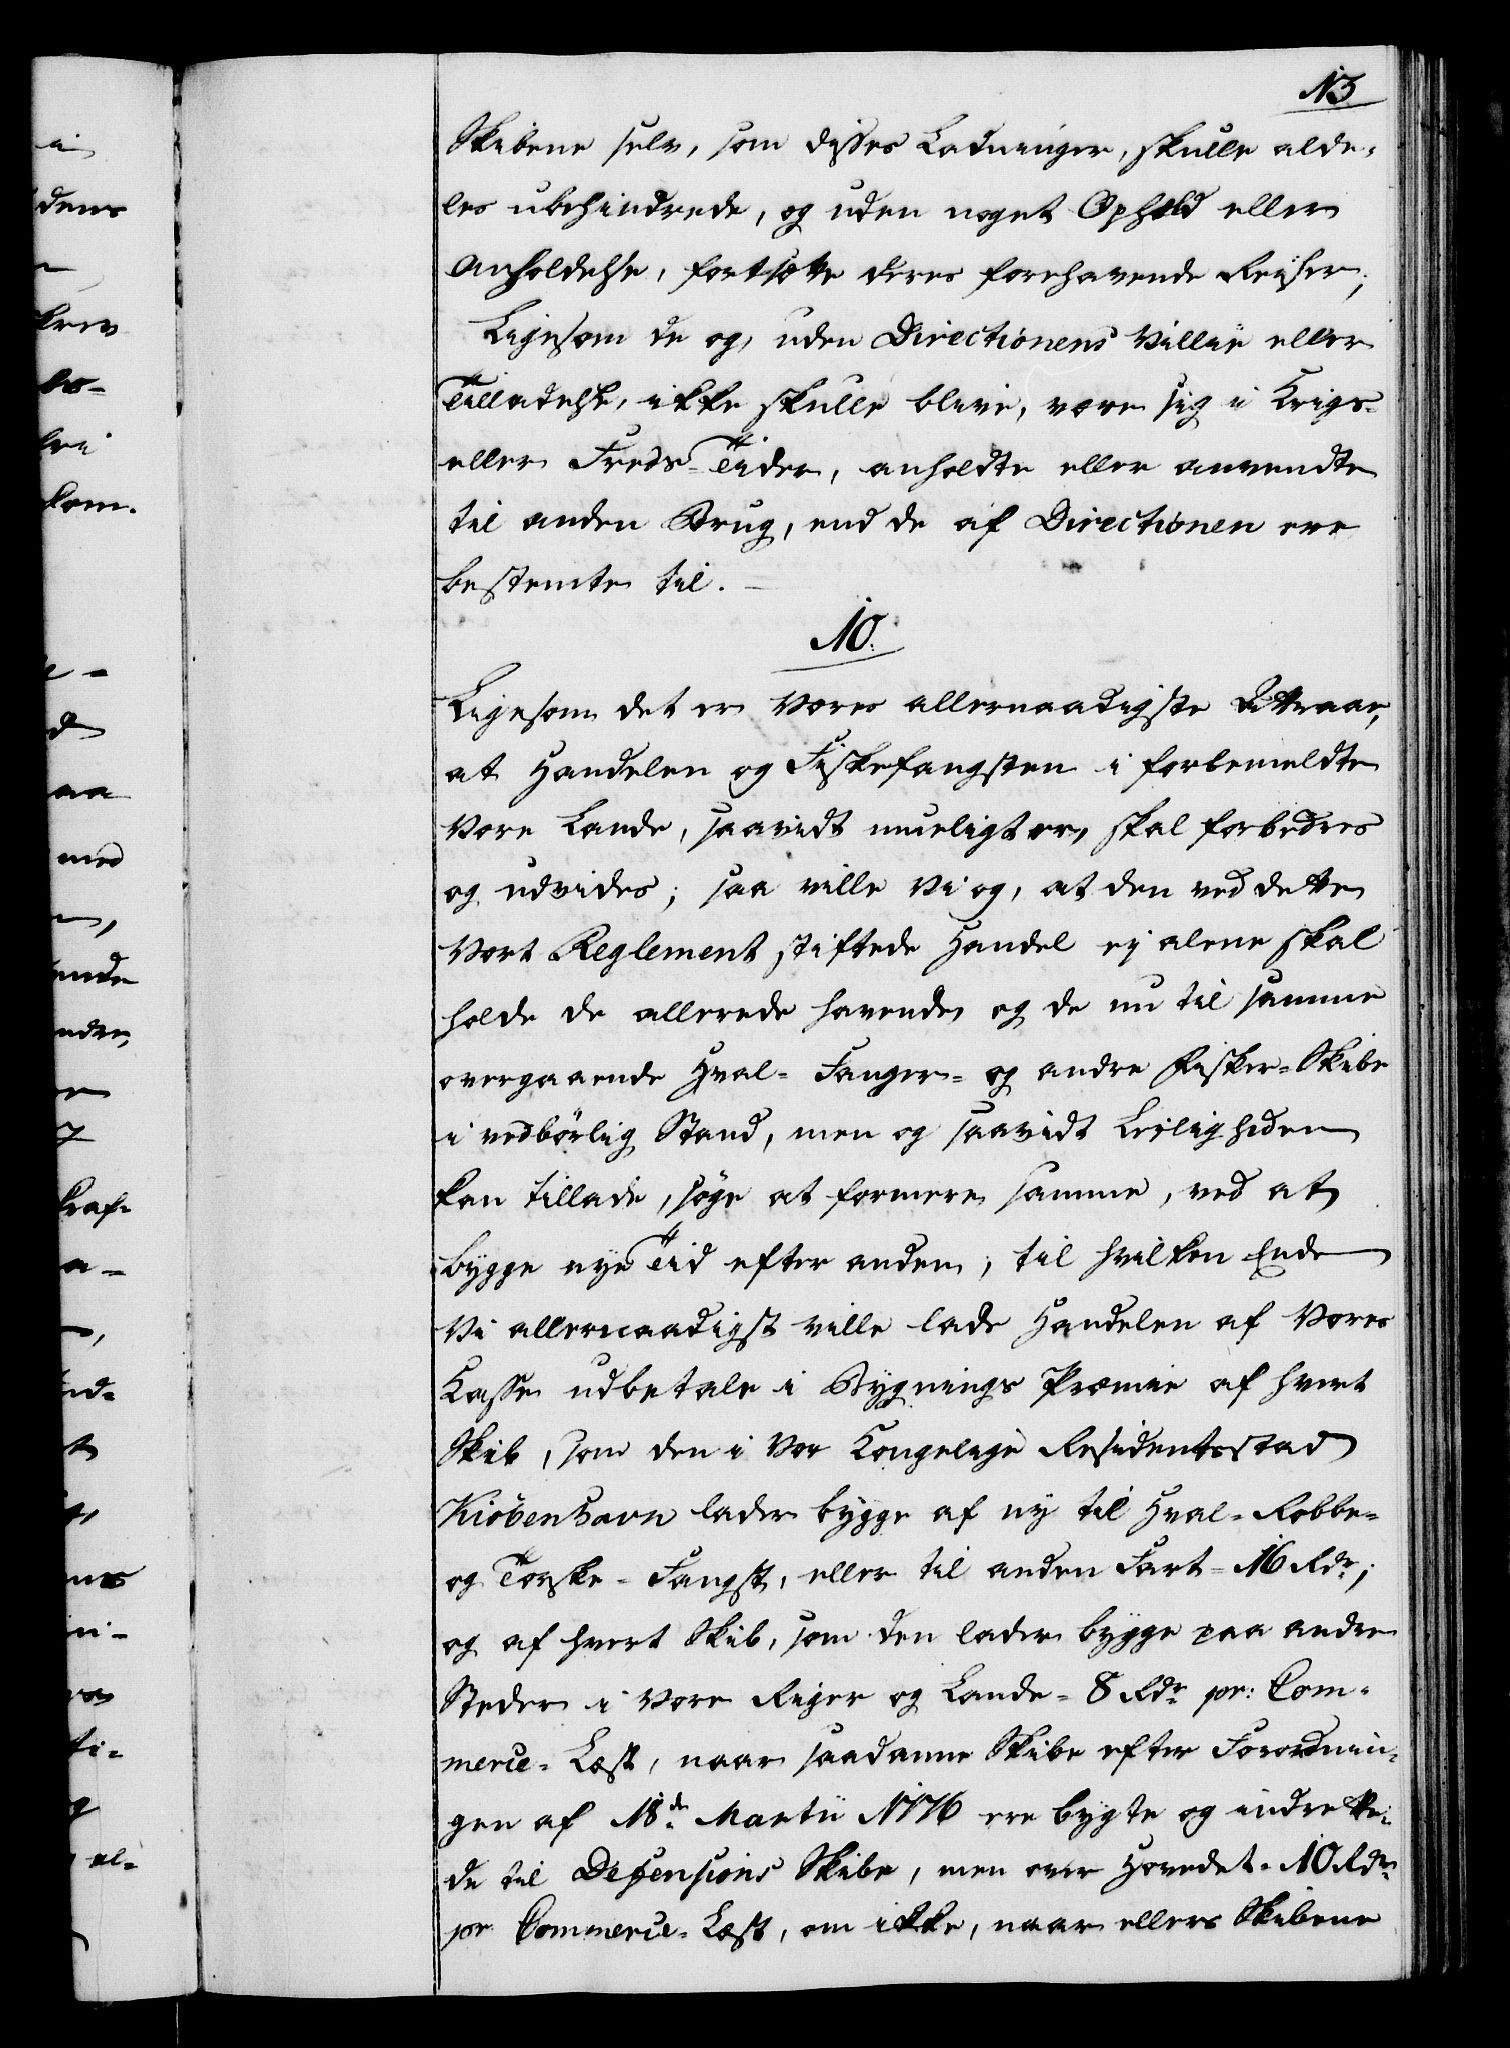 13
Skibene selv, som disses Ladninger, skulle alde-
les ubehindrede, og uden noget Ophold eller
Anholdelse, fortsætte deres forehavende Reiser;
Ligesom de og, uden Directionens Villie eller
Tilladelse, ikke skulle blive, være sig i Krigs-
eller Freds-Tider, anholdte eller anvendte
til anden Brug, end de af Directionen ere
bestemte til.
10.
Ligesom det er Vores allernaadigste Attraae,
at Handelen og Fiskefangsten i forbemeldte
Vore Lande, saavidt mueligt er, skal forbedres
og udvides; saa ville Vi og, at den ved dette
Vort Reglement stiftede Handel ej alene skal
holde de allerede havende og de nu til samme
overgaaende Hval-Fanger- og andre Fisker-Skibe
i vedbørlig Stand, men og saavidt Leiligheden
kan tillade, søge at formere samme, ved at
bygge nye Tid efter anden; til hvilken Ende
Vi allernaadigst ville lade Handelen af Vores
Casse udbetale i Bygnings Præmie af hvert
Skib, som den i Vor Kongelige Residentzstad
Kiöbenhavn lader bygge af ny til Hval-Robbe-
og Torske-Fangst, eller til anden Fart-16 Rdr;
og af hvert Skib, som den lader bygge paa andre
Steder i Vore Riger og Lande-8 Rdr pr: Com-
merce-Læst, naar saadanne Skibe efter Forordnin-
gen af 18de Martii 1776 ere bygte og indrette-
de til Defensions Skibe, men over Hovedet-10 Rdr
pr Commerce-Læst, om ikke, naar ellers Skibene
dens
aa
med
ende
ndre,